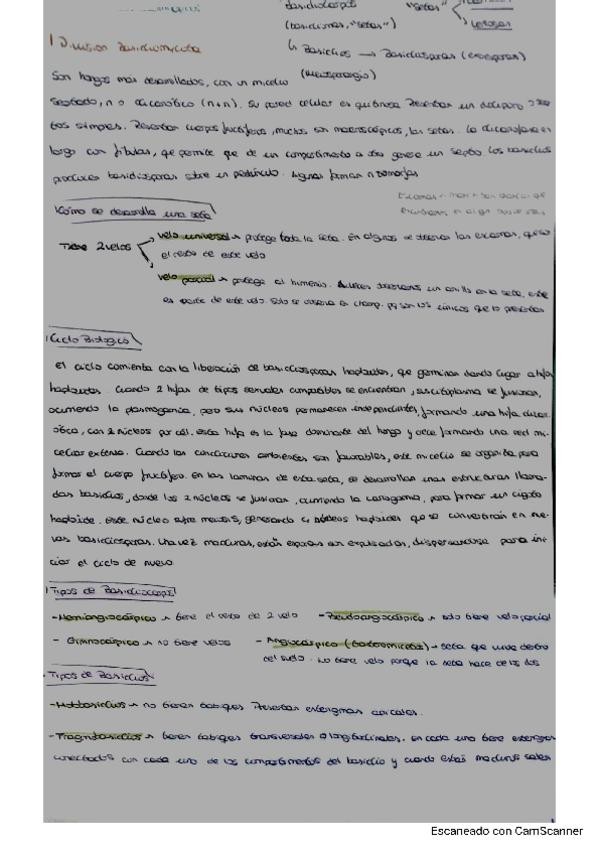 basidiomas "setas"
(basidiomas, "setas") Leñosas
| División Basidiomycota ↳ Basidios → Basidiosporas (exosporas)
Son hongos más desarrollados, con un micelio (meiosporangio)
septado, n o dicariótico (n+n). Su pared celular es quitinosa. Presentan un doliporo
simples. Presentan cuerpos fructíferos, muchos son macroscópicos, las setas. La dicariofase es
larga con fíbulas, que permite que de un compartimento a otro genere un septo. Los basidios
producen basidiosporas sobre un pedúnculo. Algunas forman
¿Cómo se desarrolla una seta?
Tiene 2 velos
velo universal → protege toda la seta. En algunos se observan las escamas, que es
el resto de este velo
velo parcial → protege al himenio. A veces observamos un anillo en la seta, este
es parte de este velo. Solo se observa en champ. pq son los únicos que lo presentan
Ciclo Biológico
El ciclo comienza con la liberación de basidiosporas haploides, que germinan dando lugar a hifas
haploides. Cuando 2 hifas de tipos sexuales compatibles se encuentran, sus citoplasma se fusionan,
ocurriendo la plasmogamia, pero sus núcleos permanecen independientes, formando una hifa dicari-
ótica, con 2 núcleos por cél. esta hifa es la fase dominante del hongo y crece formando una red mi-
celiar extensa. Cuando las condiciones ambientales son favorables, este micelio se organiza para
formar el cuerpo fructífero. En las laminas de esta seta, se desarrollan unas estructuras llama-
das basidios, donde los 2 núcleos se fusionan, ocurriendo la cariogamia, para formar un cigoto
haploide. Este núcleo sufre meiosis, generando 4 núcleos haploides que se convertirán en nue-
vas basidiosporas. Una vez maduras, estas esporas son expulsadas, dispersandose para ini-
ciar el ciclo de nuevo.
Tipos de Basidiocarpos
- Hemiangiocárpico → tiene el resto de 2 velo - Pseudoangiocárpico → solo tiene velo parcial
- Gimnocárpico → no tiene velos - Angiocárpico (Gasteromicetos) → seta que vive dentro
del suelo. No tiene velo porque la seta hace de los dos
Tipos de Basidios
- Holobasidios → no tienen tabiques. Presentan esterigmas apicales.
- Fragmobasidios → tienen tabiques transversales o longitudinales. En cada uno tiene esterigmas
conectados con cada uno de los compartimentos del basidio y cuando están maduros salen
Escaneado con CamScanner